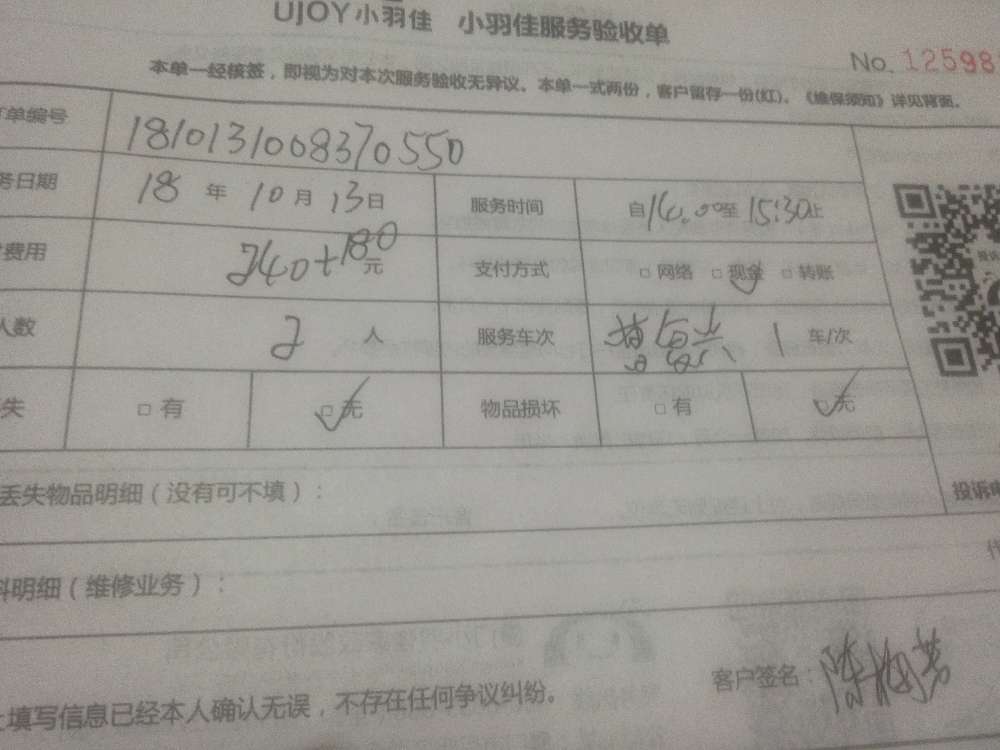 UJOY小羽佳 小羽佳服务验收单
No. 12598
本单一经核签，即视为对本次服务验收无异议。本单一式两份，客户留存一份(红)。《维保须知》详见背面。
单编号 1810131008370550
务日期 18 年 10 月 13 日 服务时间 自 14:00 至 15:30 止
费用 240+180 元 支付方式 □ 网络 □ 现金 □ 转账
人数 2 人 服务车次 1 车/次
失 □ 有 □ 无 物品损坏 □ 有 □ 无
丢失物品明细（没有可不填）：
投诉
料明细（维修业务）：
客户签名：陈梅芳
上填写信息已经本人确认无误，不存在任何争议纠纷。